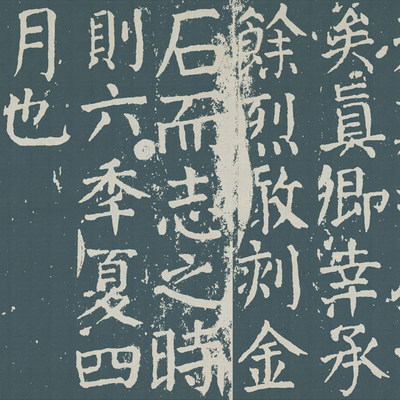 矣眞卿幸承
餘烈敢刻金
石而志之時
則六秊夏四
月也